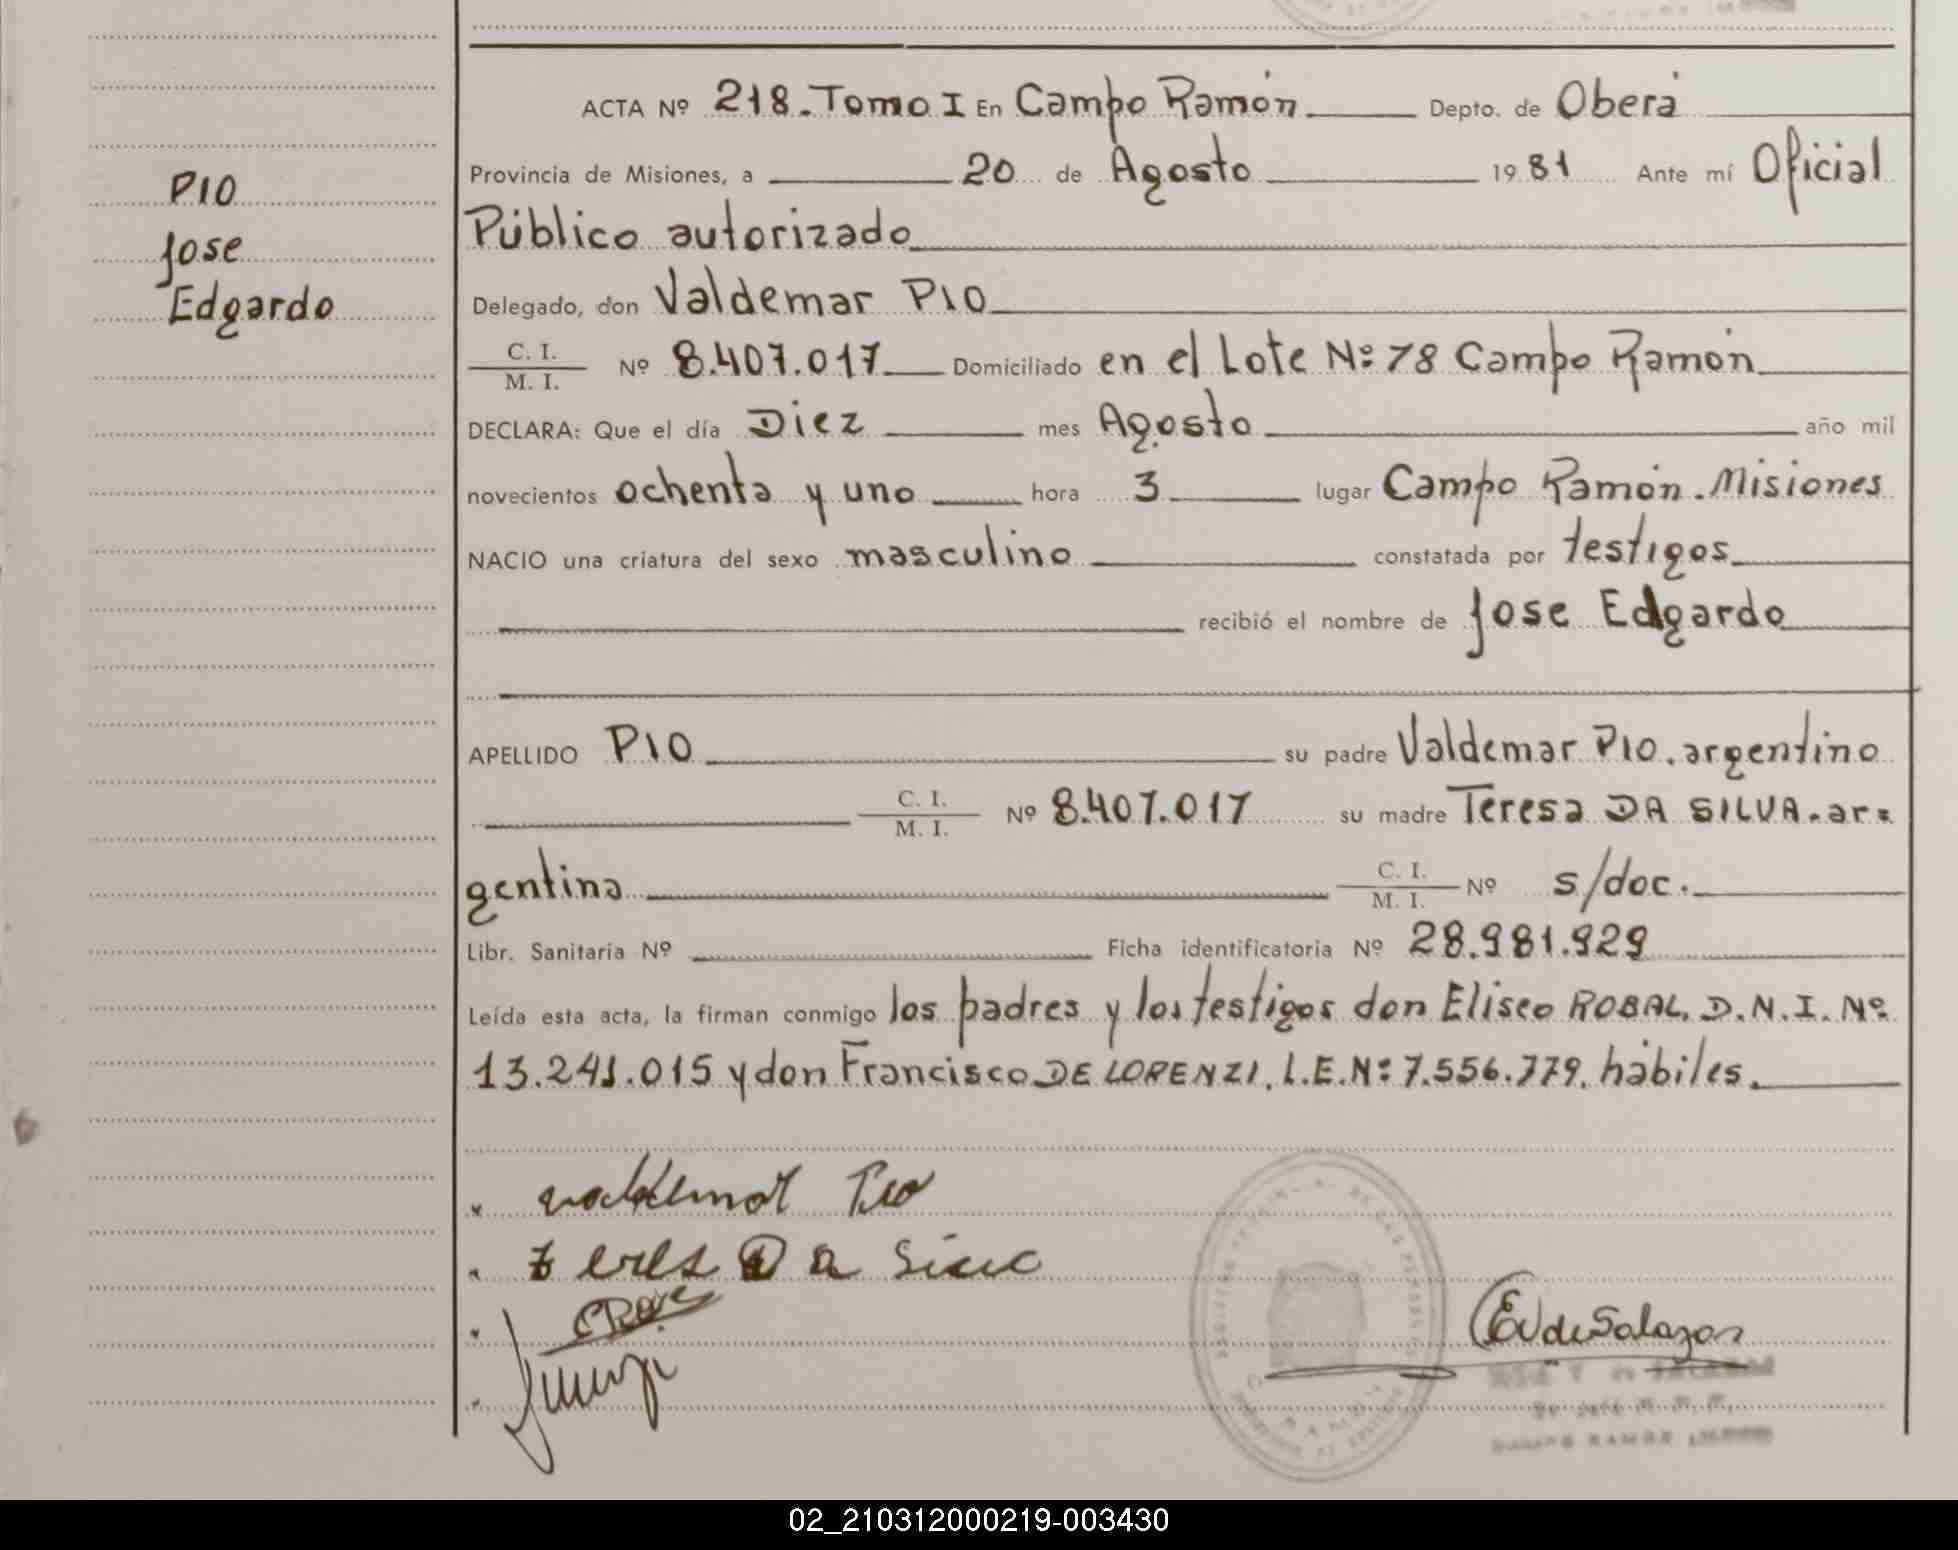 ACTA Nº 218. Tomo I En Campo Ramón Depto. de Oberá
Provincia de Misiones, a 20 de Agosto 1981 Ante mí Oficial
Público autorizado
Delegado, don Valdemar PIO
C. I.
M. I. Nº 8.407.017 Domiciliado en el Lote Nº: 78 Campo Ramón
DECLARA: Que el día Diez mes Agosto año mil
novecientos ochenta y uno hora 3 lugar Campo Ramón. Misiones
NACIO una criatura del sexo masculino constatada por testigos
recibió el nombre de Jose Edgardo
APELLIDO PIO su padre Valdemar PIO. argentino
C. I.
M. I. Nº 8.407.017 su madre Teresa DA SILVA. ar=
gentina C. I.
M. I. Nº s/doc.
Libr. Sanitaria Nº Ficha identificatoria Nº 28.981.929
Leída esta acta, la firman conmigo los padres y los testigos don Eliseo ROBAL, D.N.I. Nº
13.241.015 y don Francisco DE LORENZI, L.E. Nº: 7.556.779, hábiles.
PIO
Jose
Edgardo
Valdemar Pio
EV de Salazar
CAMPO RAMON
02_210312000219-003430